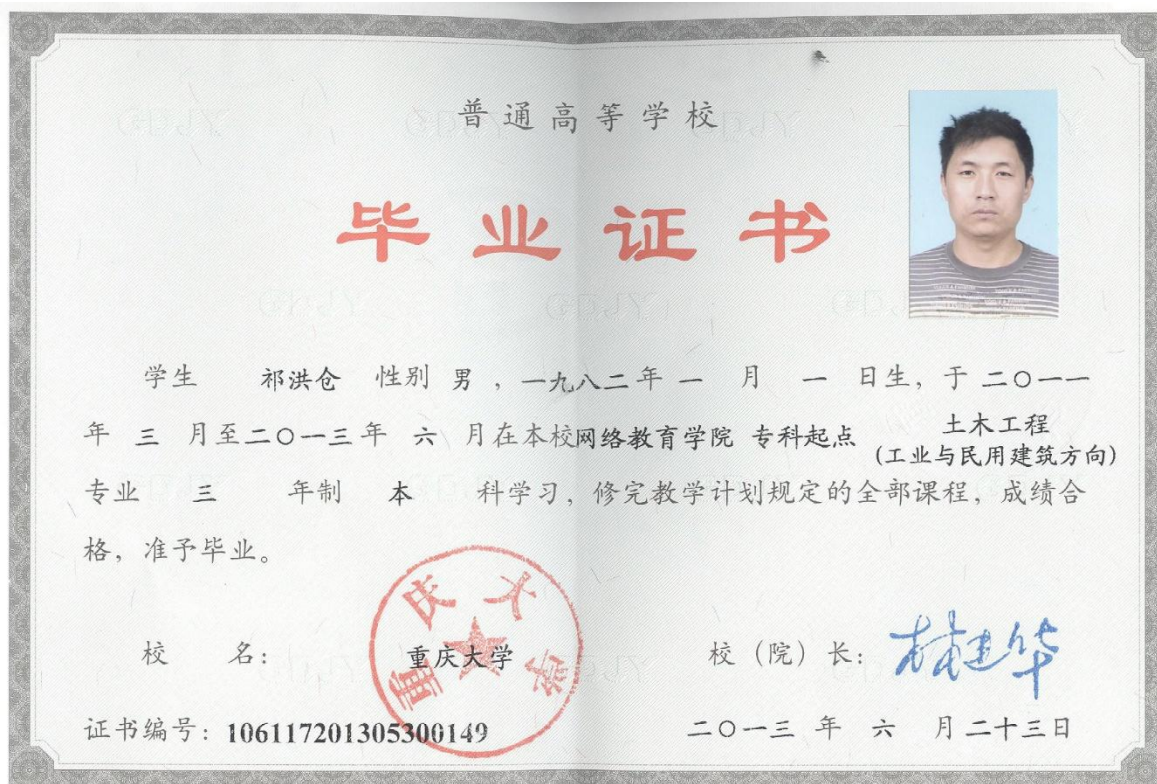 普通高等学校
毕业证书
学生 祁洪仓 性别 男 ，一九八二年 一 月 一 日生，于 二〇一一
年 三 月至二〇一三年 六 月在本校网络教育学院 专科起点 土木工程
(工业与民用建筑方向)
专业 三 年制 本 科学习，修完教学计划规定的全部课程，成绩合
格，准予毕业。
校 名： 重庆大学
重庆大学
校（院）长： 林建华
证书编号：106117201305300149
二〇一三 年 六 月二十三日